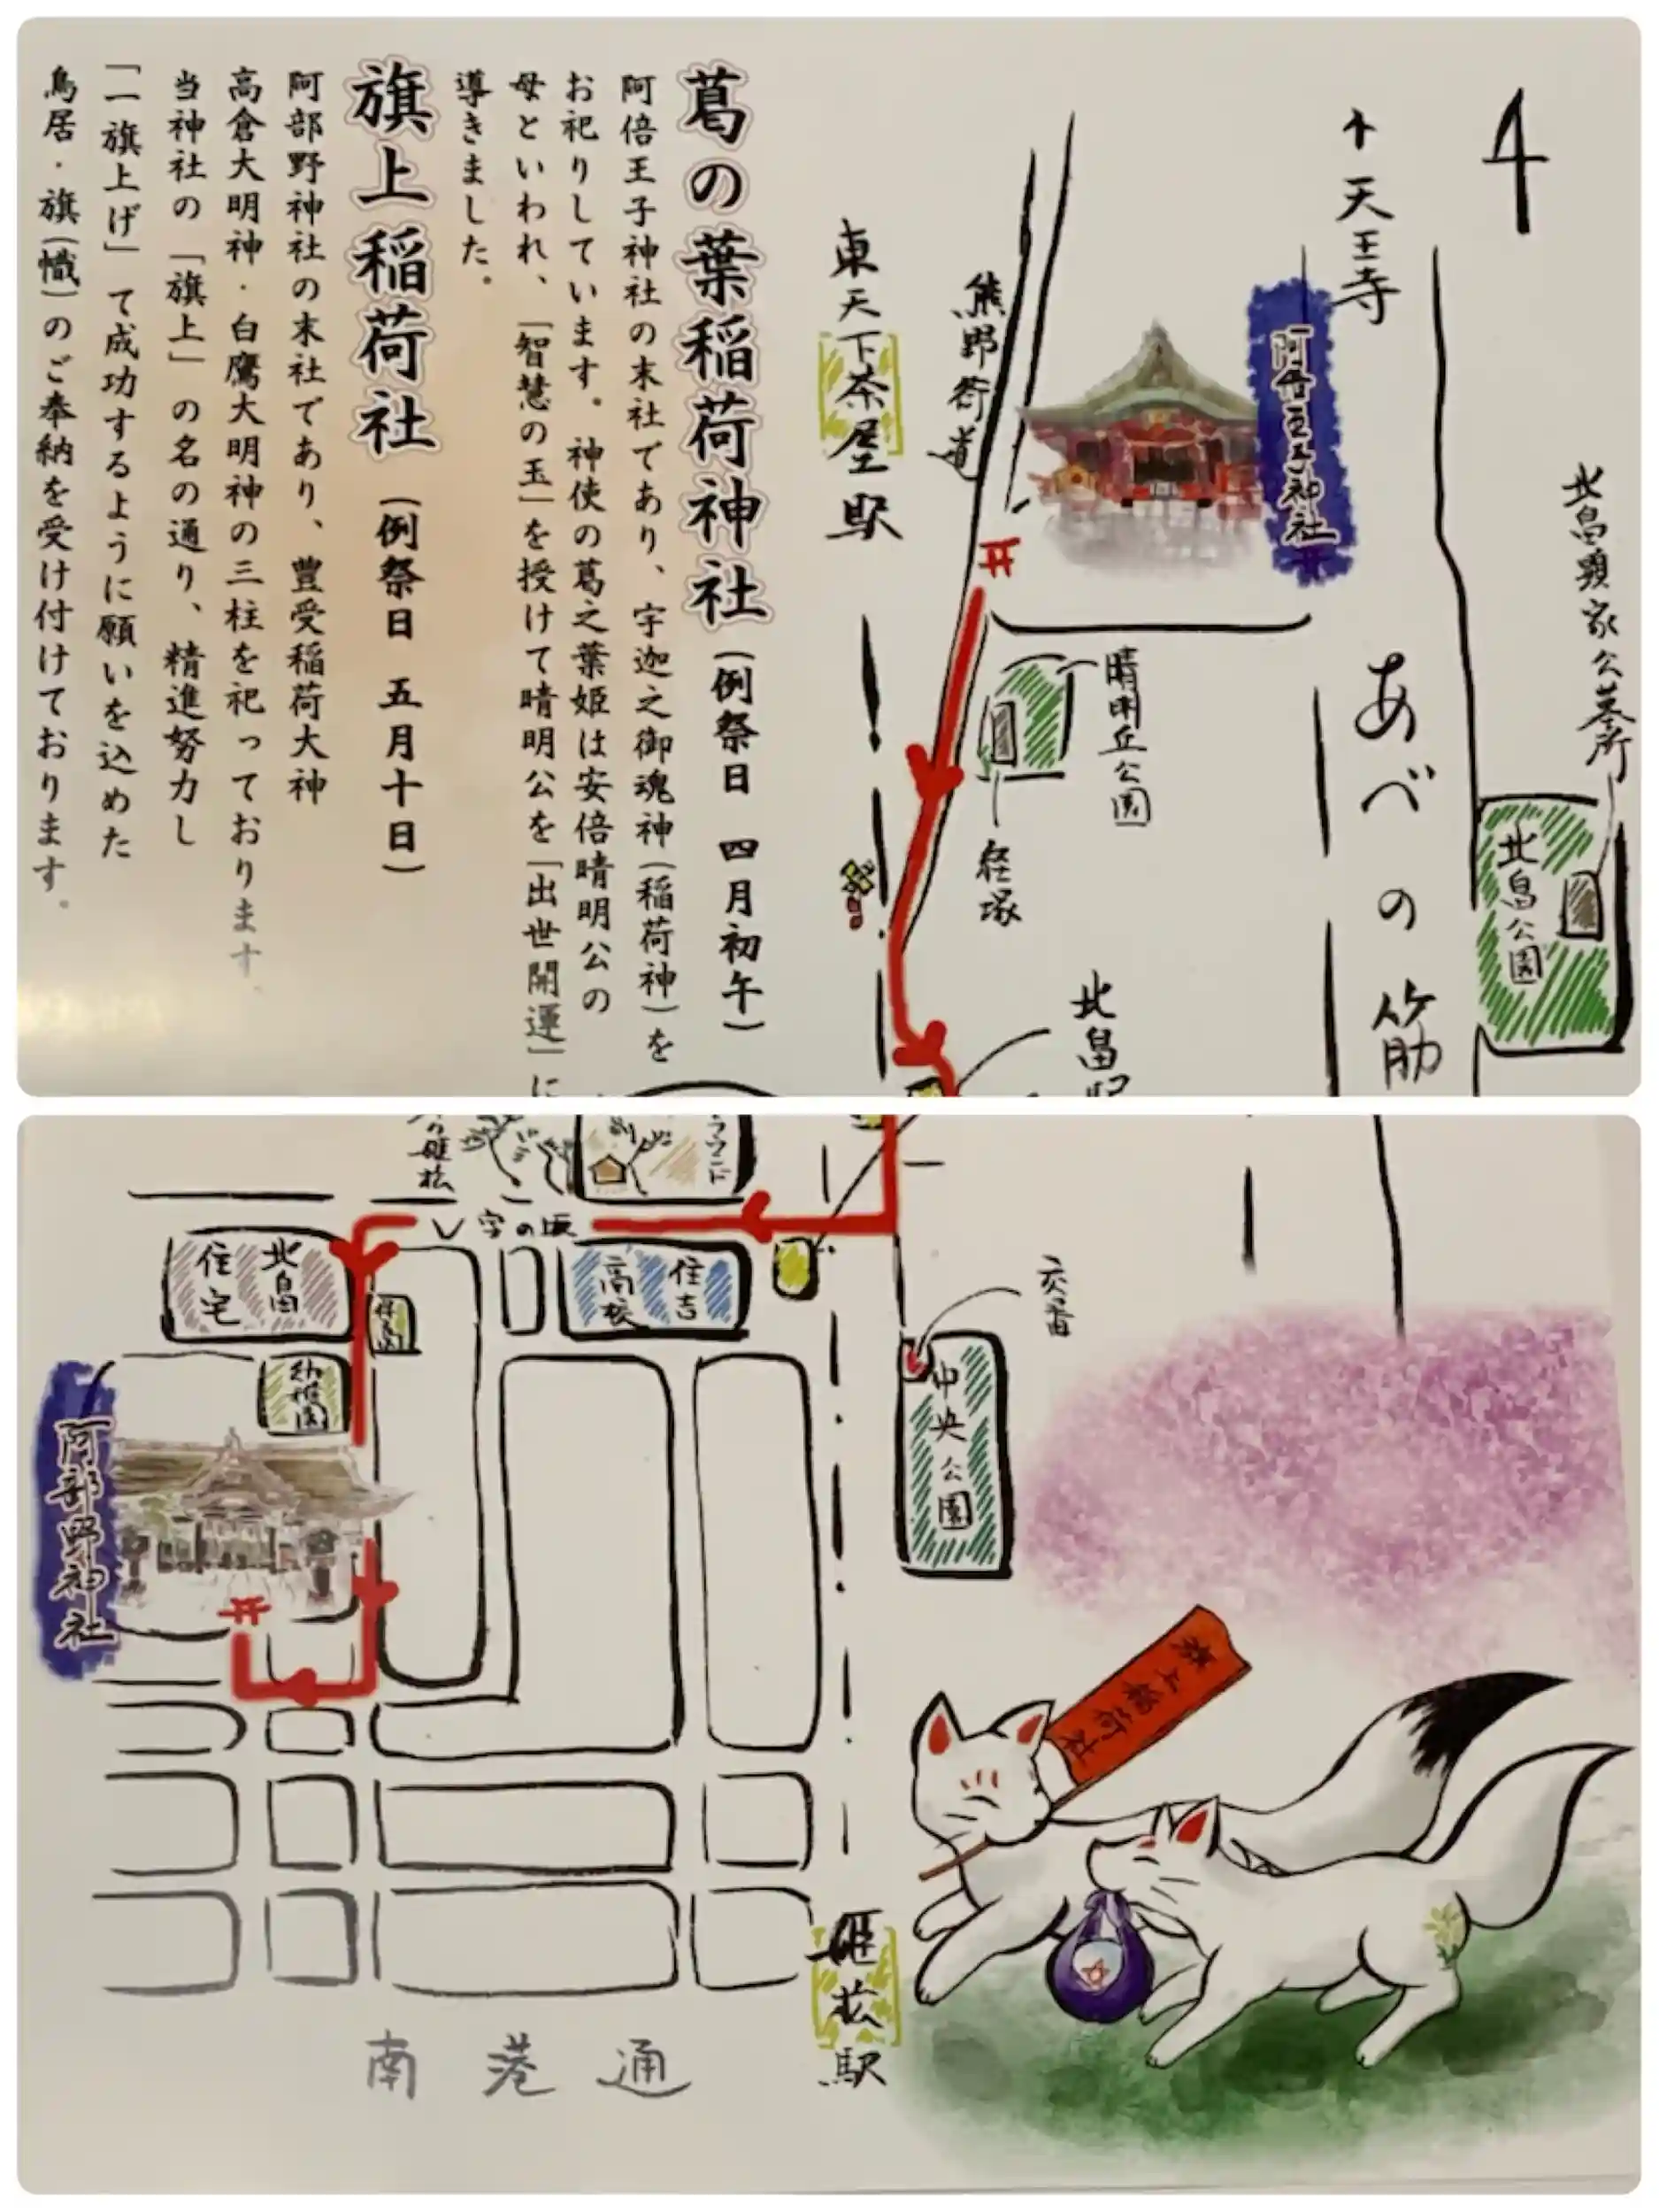 葛の葉稲荷神社(例祭日 四月初午)
阿倍王子神社の末社であり、宇迦之御魂神(稲荷神)を
お祀りしています。神使の葛之葉姫は安倍晴明公の
母といわれ、「智慧の玉」を授けて晴明公を「出世開運」に
導きました。
旗上稲荷社(例祭日 五月十日)
阿部野神社の末社であり、豊受稲荷大神
高倉大明神・白鷹大明神の三柱を祀っております
当神社の「旗上」の名の通り、精進努力し
「一旗上げ」て成功するように願いを込めた
鳥居・旗(幟)のご奉納を受け付けております。
4
↑天王寺
阿倍王子神社
熊野街道
東天下茶屋駅
北畠顕家公墓所
北畠公園
あべの筋
晴明丘公園
経塚
北畠駅
の姫松
V字の坂
北畠
住宅
住吉
高校
幼稚園
阿部野神社
交番
中央公園
旗上稲荷社
姫松駅
南港通